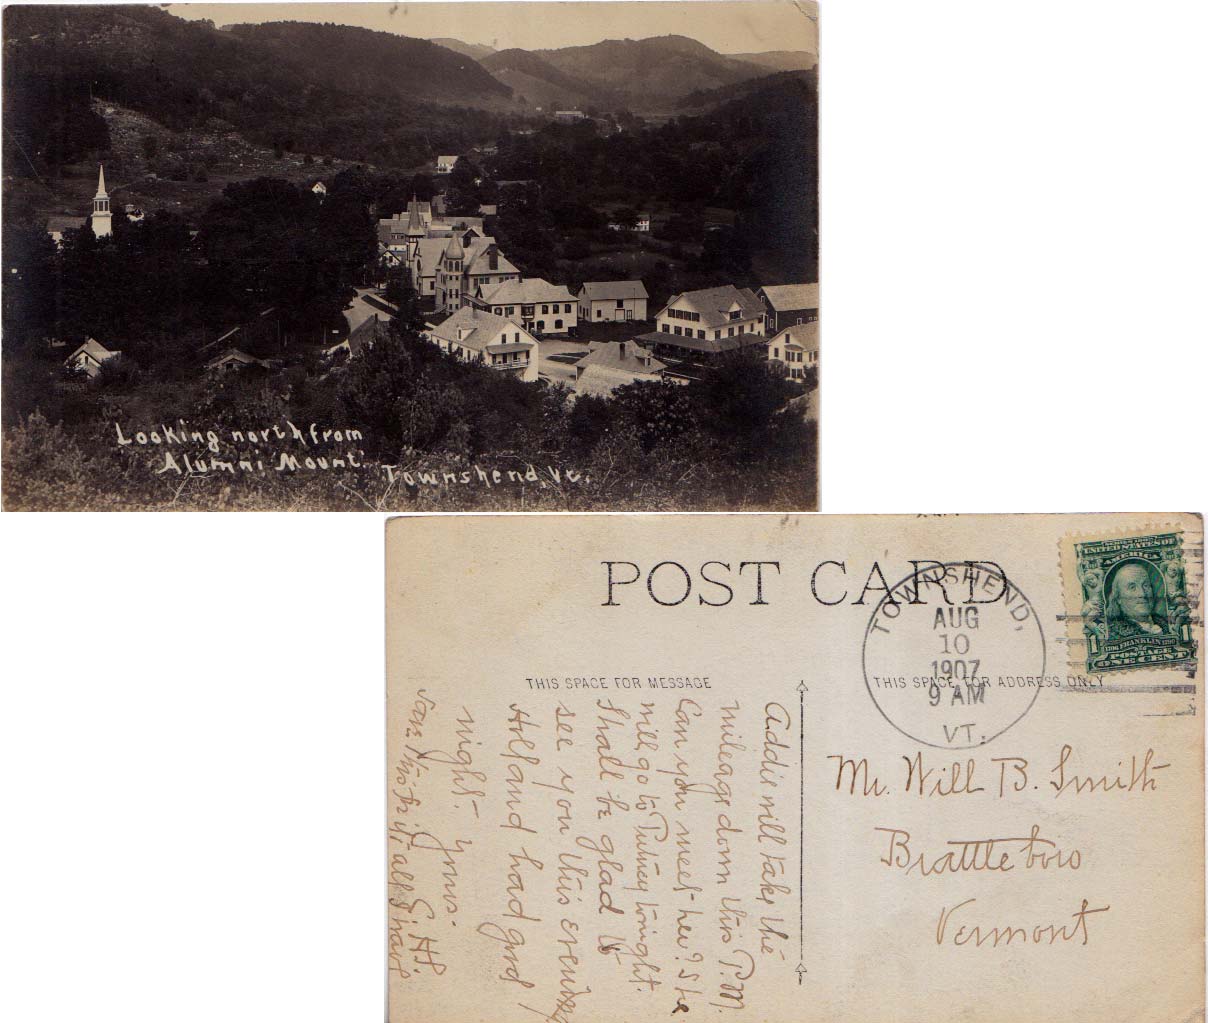 Looking north from
Alumni Mount. Townshend, Vt.
POST CARD
TOWNSHEND,
AUG
10
1907
9 AM
VT.
SERIES 1902
UNITED STATES OF
AMERICA
1 1
1706 FRANKLIN 1790
POSTAGE
ONE CENT
THIS SPACE FOR MESSAGE
THIS SPACE FOR ADDRESS ONLY
Addie will take the
mileage down this P.M.
Can you meet her? She
will go to Putney tonight.
Shall be glad to
see you this evening
Holland had good
night. Yours.
E. H. S.
all I have
Mr. Will B. Smith
Brattleboro
Vermont